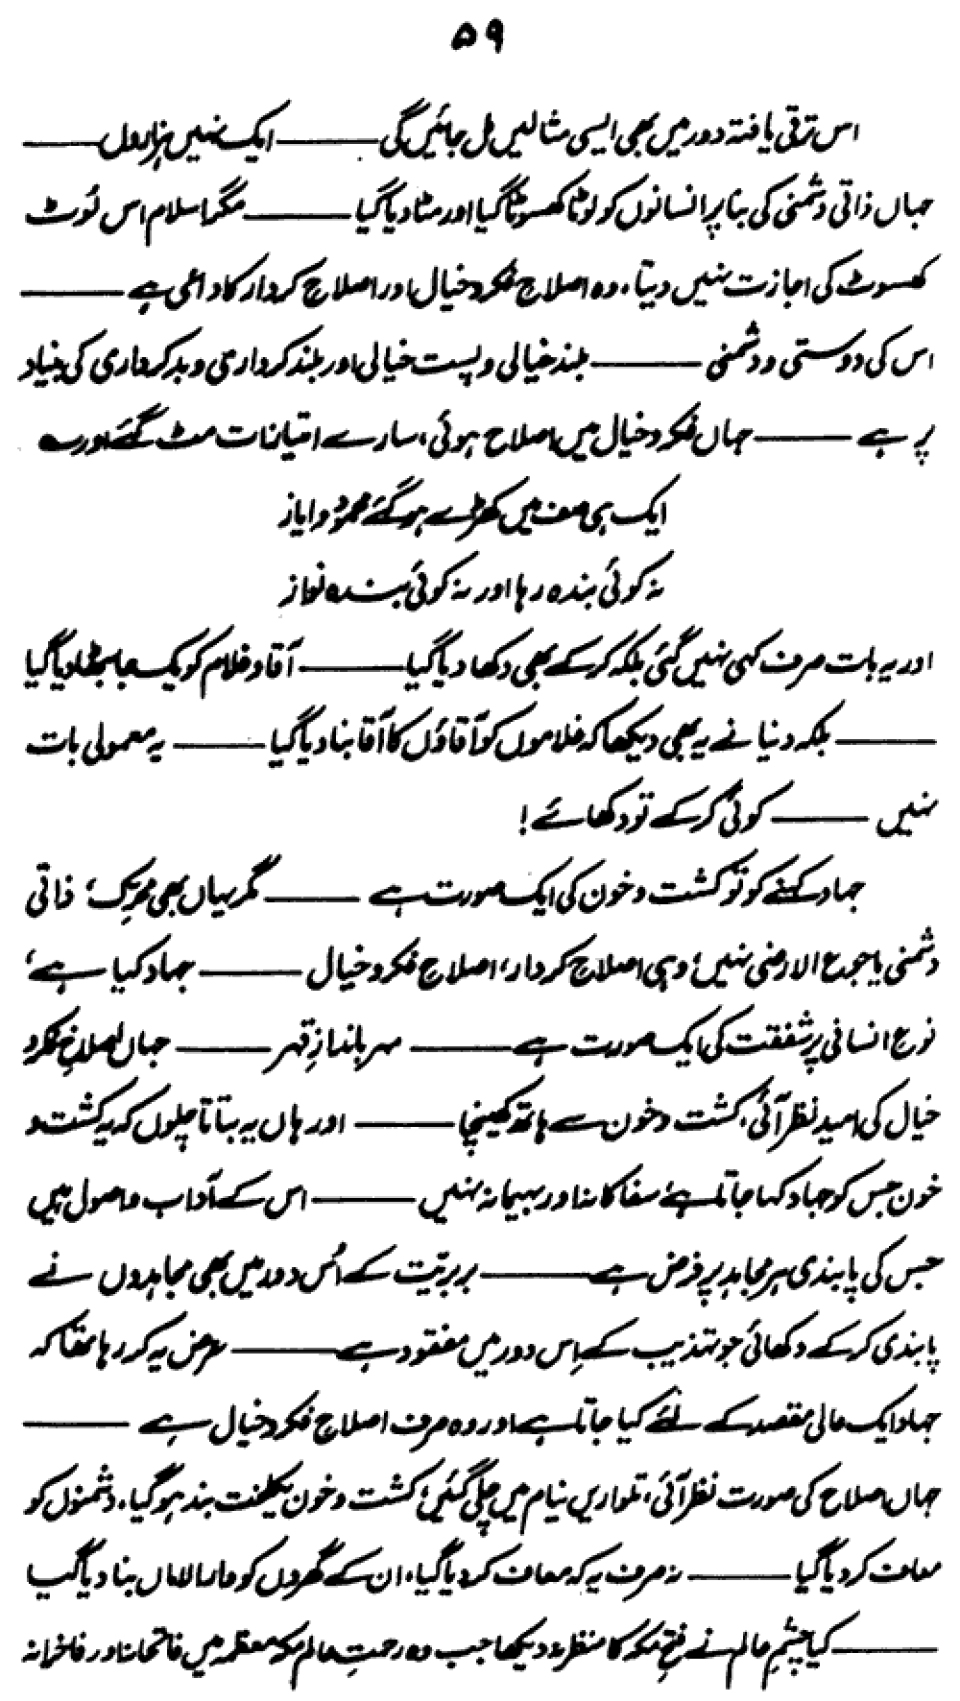 ۵۹
اس ترقی یافتہ دور میں بھی ایسی مثالیں مل جائیں گی ——— ایک نہیں ہزاروں ———
جہاں ذاتی دشمنی کی بنا پر انسانوں کو لوٹا کھسوٹا گیا اور مٹا دیا گیا ——— مگر اسلام اس لُوٹ
کھسوٹ کی اجازت نہیں دیتا، وہ اصلاحِ فکر و خیال اور اصلاحِ کردار کا داعی ہے ———
اس کی دوستی و دشمنی ——— بلند خیالی و پست خیالی اور بلند کرداری و بدکرداری کی بنیاد
پر ہے ——— جہاں فکر و خیال میں اصلاح ہوئی، سارے امتیازات مٹ گئے اور ؎
ایک ہی صف میں کھڑے ہو گئے محمود و ایاز
نہ کوئی بندہ رہا اور نہ کوئی بندہ نواز
اور یہ بات صرف کہی نہیں گئی بلکہ کر کے بھی دکھا دیا گیا ——— آقا و غلام کو یک جا بٹھا دیا گیا
——— بلکہ دنیا نے یہ بھی دیکھا کہ غلاموں کو آقاؤں کا آقا بنا دیا گیا ——— یہ معمولی بات
نہیں ——— کوئی کر کے تو دکھائے!
جہاد کہنے کو تو کشت و خون کی ایک صورت ہے ——— مگر یہاں بھی محرِّک، ذاتی
دشمنی یا جوع الارضی نہیں؛ وہی اصلاحِ کردار، اصلاحِ فکر و خیال ——— جہاد کیا ہے،
نوعِ انسانی پر شفقت کی ایک صورت ہے ——— مہر باندازِ قہر ——— جہاں اصلاحِ فکر و
خیال کی امید نظر آئی، کشت و خون سے ہاتھ کھینچا ——— اور ہاں یہ بتاتا چلوں کہ یہ کشت و
خون جس کو جہاد کہا جاتا ہے، سفاکانہ اور بہیمانہ نہیں ——— اس کے آداب و اصول ہیں
جس کی پابندی ہر مجاہد پر فرض ہے ——— بربریّت کے اُس دور میں بھی مجاہدوں نے
پابندی کر کے دکھائی جو تہذیب کے اِس دور میں مفقود ہے ——— عرض یہ کر رہا تھا کہ
جہاد ایک عالی مقصد کے لئے کیا جاتا ہے اور وہ صرف اصلاحِ فکر و خیال ہے ———
جہاں اصلاح کی صورت نظر آئی، تلواریں نیام میں چلی گئیں؛ کشت و خون یکلخت بند ہو گیا، دشمنوں کو
معاف کر دیا گیا ——— نہ صرف یہ کہ معاف کر دیا گیا، ان کے گھروں کو دارالاماں بنا دیا گیا
——— کیا چشمِ عالم نے فتحِ مکہ کا منظر نہ دیکھا جب وہ رحمتِ عالم مکہ معظمہ میں فاتحانہ اور فاخرانہ